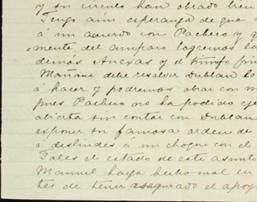 y su circulo han obrado bien
Tengo aun esperanza de que
á un acuerdo con Pacheco y q
mente, del amparo logremos la
demás Anexas y el triunfo fin
Mañana debe resolver Dublan lo
á hacer y podremos obrar con m
pues Pacheco no ha podido eje
abierta sin contar con Dublan
exponer su famosa orden de
o deslindes á un choque con el
Tales el estado de este asunto
Manuel haya hecho mal en
tes de tener asegurado el apoy